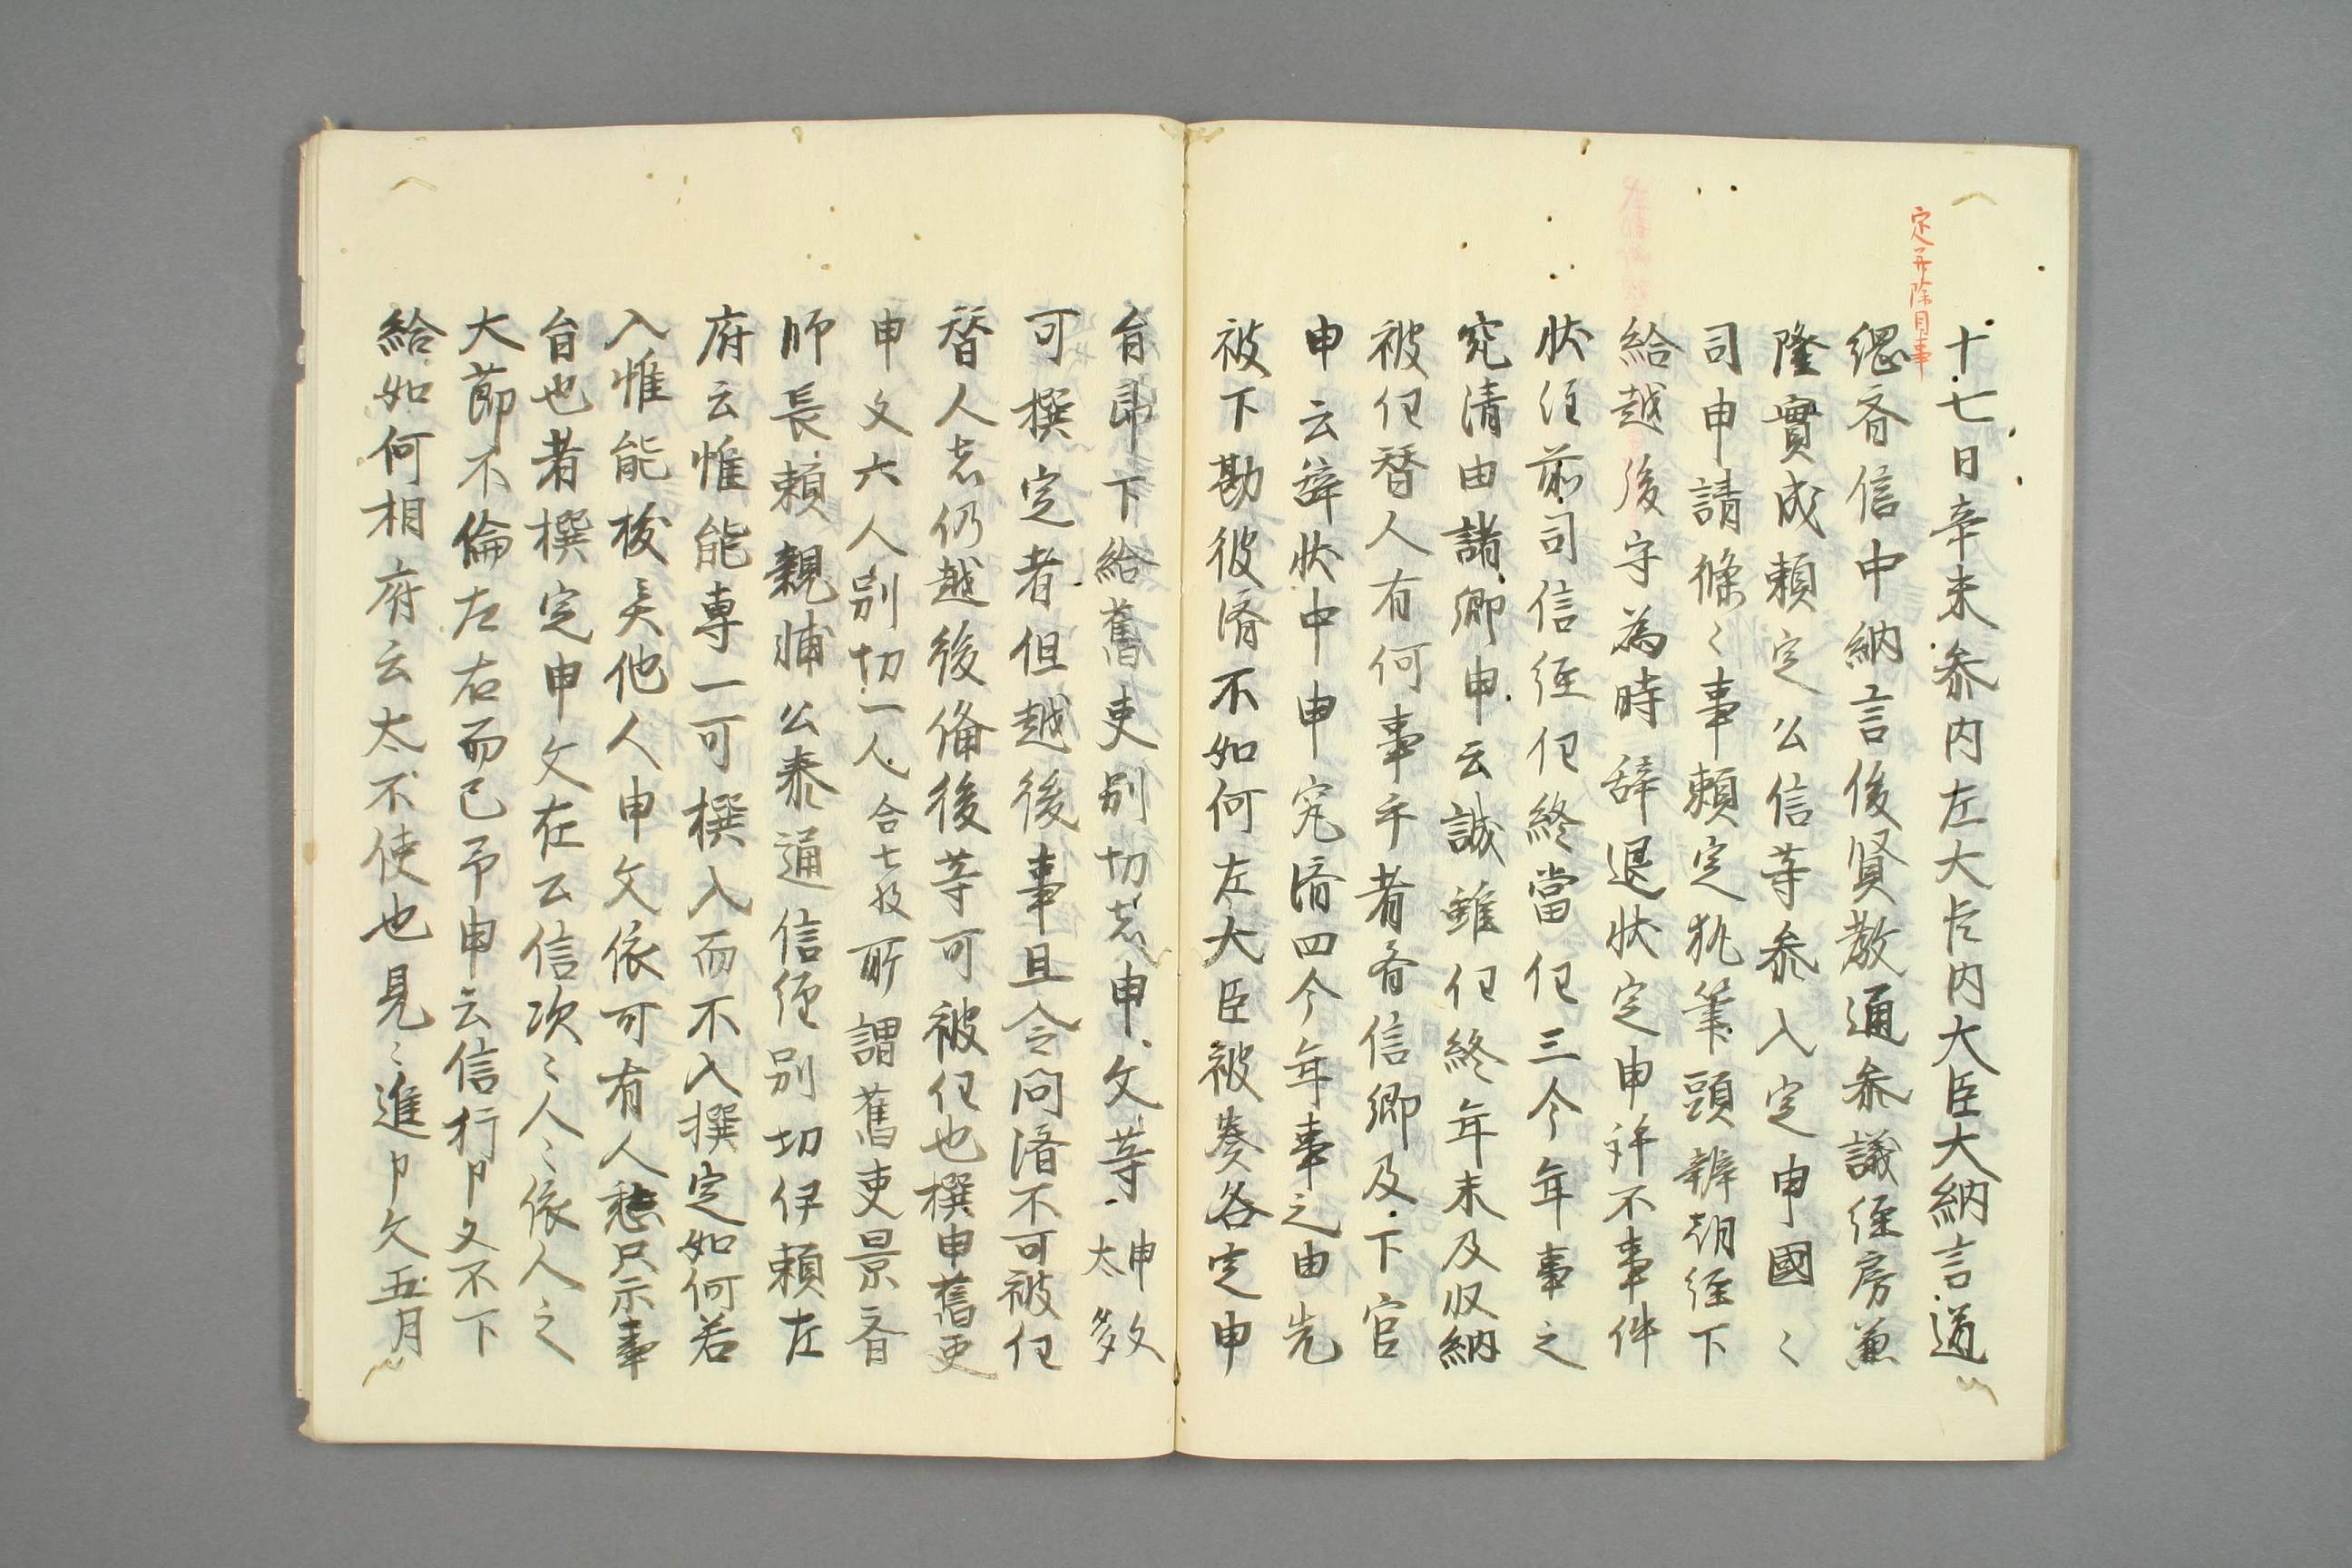 定并除目事
十七日辛未参内左大臣内大臣大納言道
綱斉信中納言俊賢教通参議経房兼
隆實成頼定公信等参入定申國〻
司申請條〻事頼定執筆頭辨朝経下
給越後守為時辞退状定申許不事件
状住前司信経任終當任三今年事之
究済由諸卿申云誠雖任終年末及収納
被任替人有何事乎者斉信卿及下官
申云辞状中申究済四今年事之由先
被下勘彼済不如何左大臣被奏各定申
旨即下給舊吏別切者申文等申文太多
可撰定者但越後事且令問済不可被任
替人者仍越後備後等可被任也撰申舊吏
申文六人別切一人合七枚所謂舊吏景斉
師長頼親輔公泰通信経別切伊頼左
府云惟能專一可撰入而不入撰定如何若
入惟能梭長他人申文依可有人愁只示事
旨也者撰定申文在云信次〻人〻依人之
大節不倫左右而已予申云信行申文不下
給如何相府云太不使也見〻進申文五月